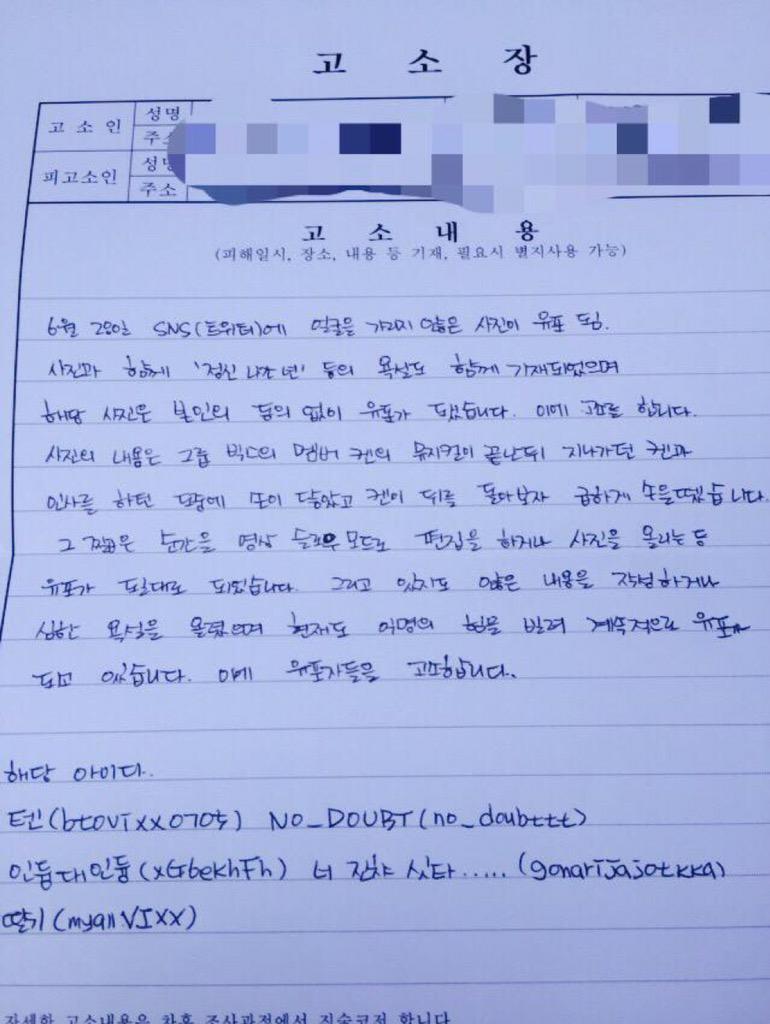 고 소 장
고 소 인 성명
주소
피고소인 성명
주소
고 소 내 용
(피해일시, 장소, 내용 등 기재, 필요시 별지사용 가능)
6월 28일 SNS(트위터)에 얼굴을 가리지 않은 사진이 유포 되임.
사진과 함께 '정신 나간 년' 등의 욕설도 함께 기재되었으며
해당 사진은 본인의 동의 없이 유포가 되었습니다. 이에 고소를 합니다.
사진의 내용은 그룹 빅스의 멤버 켄의 뮤지컬이 끝난뒤 지나가던 켄과
인사를 하던 도중에 손이 닿았고 켄이 뒤를 돌아보자 급하게 손을뗐습니다.
그 짧은 순간을 영상 슬로우모드로 편집을 하거나 사진을 올리는 등
유포가 될대로 되었습니다. 그리고 있지도 않은 내용을 작성하거나
심한 욕설을 올렸으며 현재도 익명의 힘을 빌려 계속적으로 유포가
되고 있습니다. 이에 유포자들을 고소합니다.
해당 아이디.
텐(btovixx0705) NO_DOUBT(no_doubttt)
인듐대인듐(xGbekhFh) 너 진챠 싯타..... (gonarijajotkka)
딸기(myallVIXX)
자세한 고소내용은 차후 조사과정에서 진술코저 합니다